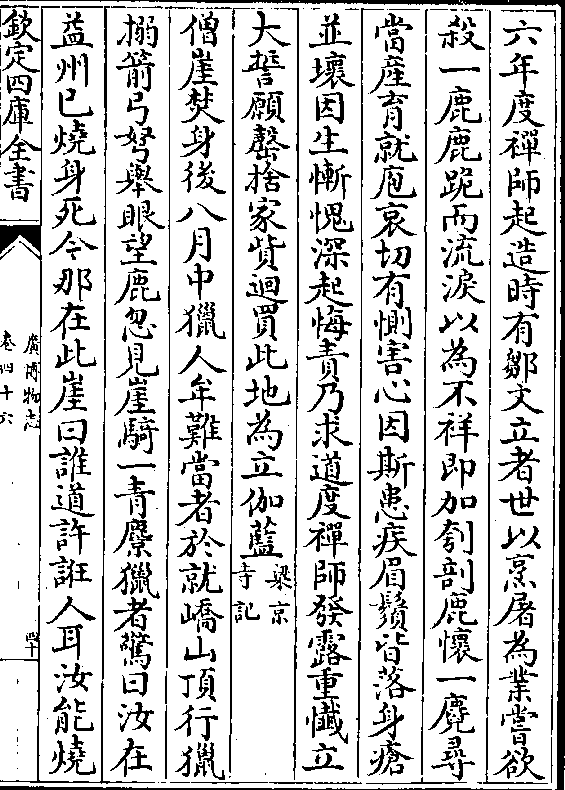 六年度禪師起造時有鄒文立者世以烹屠為業嘗欲
殺一鹿鹿跪而流淚以為不祥即加刳剖鹿懷一麑尋
當産育就庖哀切有惻害心因斯患疾眉鬚皆落身瘡
並壞因生慚愧深起悔責乃求道度禪師發露重懴立
大誓願罄捨家貲迴買此地為立伽藍梁京寺記
僧崖焚身後八月中獵人牟難當者於就嶠山頂行獵
搦箭弓弩舉眼望鹿忽見崖騎一青麖獵者驚曰汝在
益州已燒身死今那在此崖曰誰道許誑人耳汝能燒
欽定四庫全書
廣博物志
卷四十六
四十